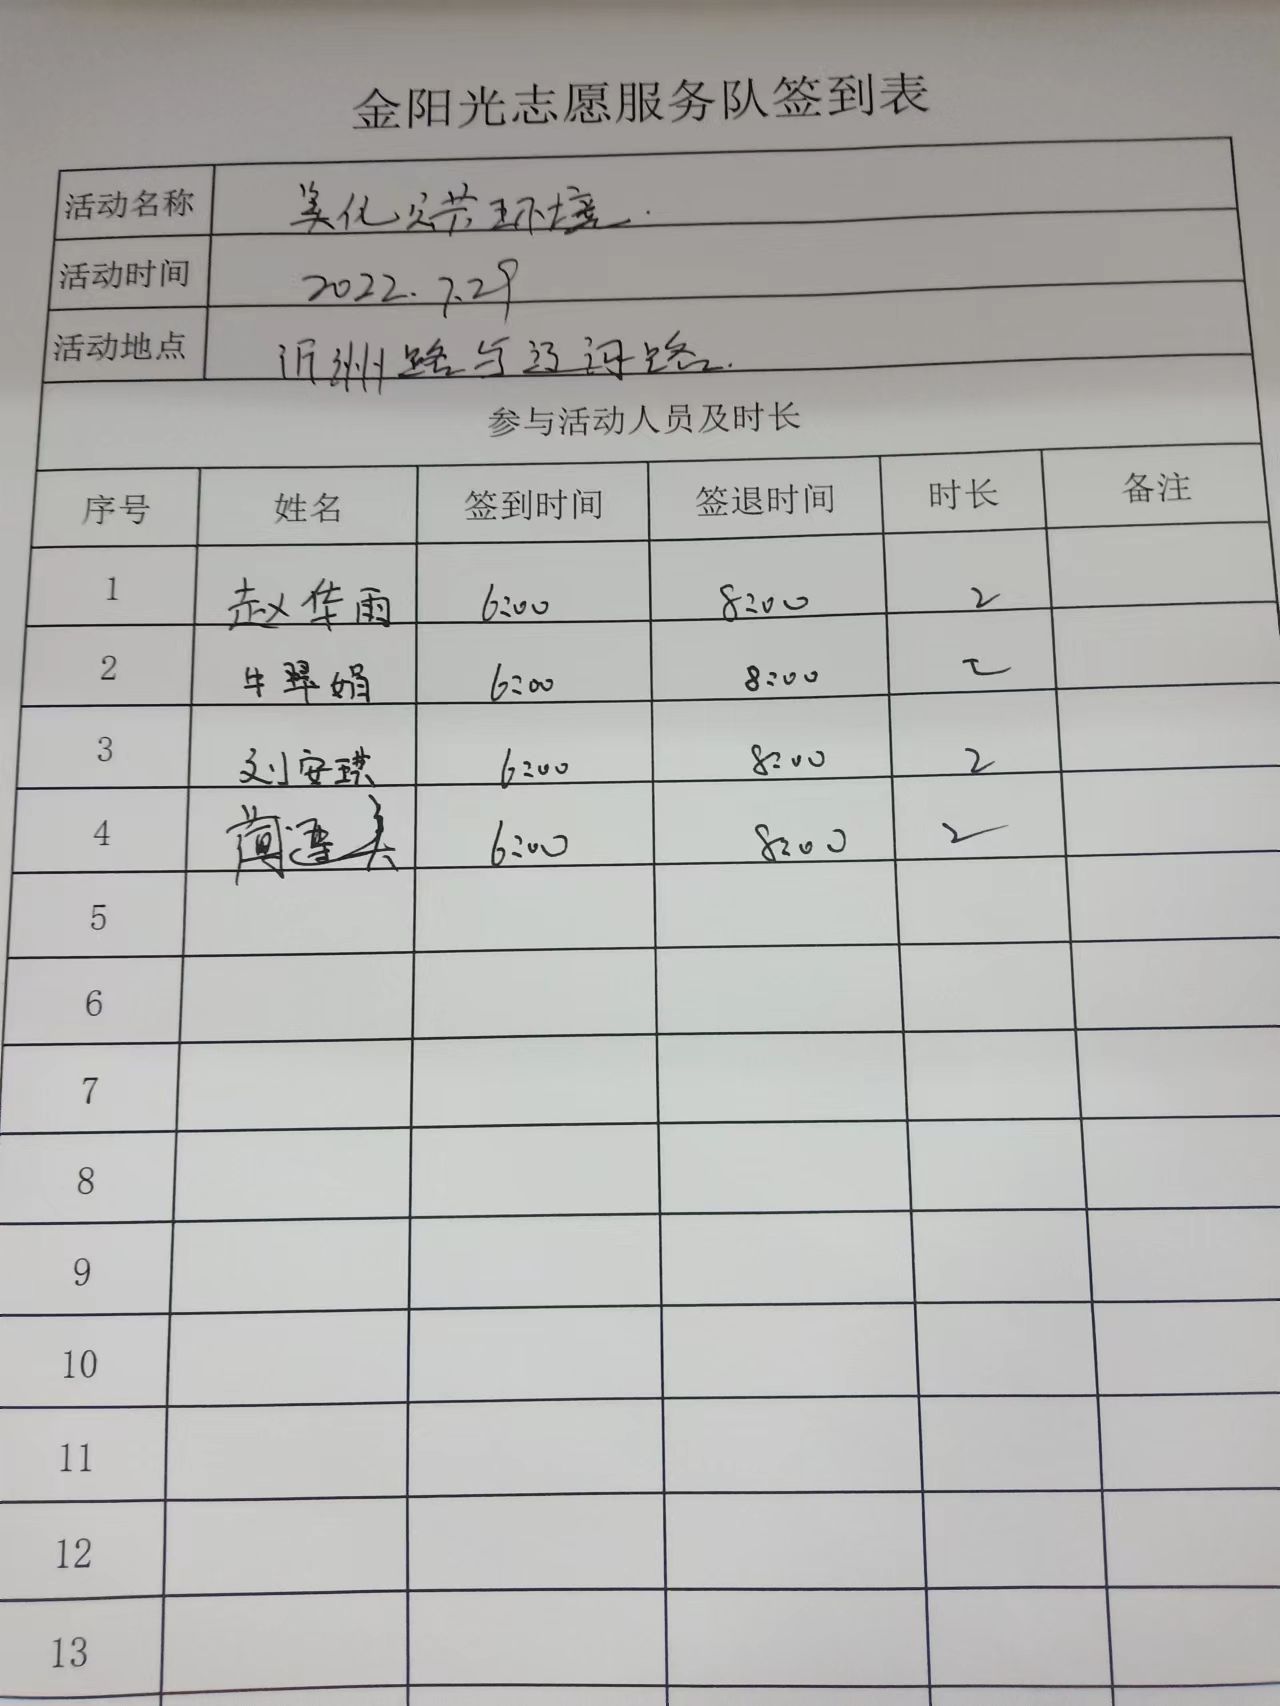 金阳光志愿服务队签到表
活动名称 美化公共环境.
活动时间 2022.7.29
活动地点 沂洲路与河路.
参与活动人员及时长
序号 姓名 签到时间 签退时间 时长 备注
1 赵华雨 6:00 8:00 2
2 牛翠娟 6:00 8:00 2
3 刘安琪 6:00 8:00 2
4 6:00 8:00 2
5
6
7
8
9
10
11
12
13